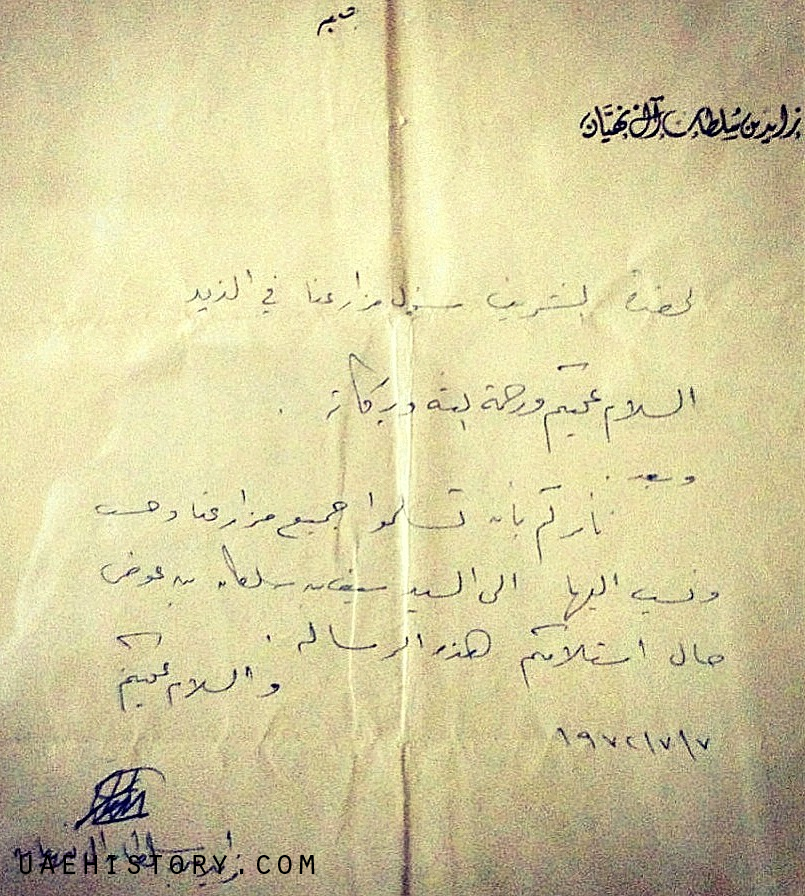 زايد بن سلطان آل نهيان
لحضرة الشريف مسئول مزارعنا في الذيد
السلام عليكم ورحمة الله وبركاته .
وبعد
نأمركم بأن تسلموا جميع مزارعنا
اليها الى السيد سيف بن سلطان بن عوض
حال استلامكم هذه الرساله .
والسلام عليكم
١٩٧٢/٧/٧
زايد بن سلطان آل نهيان
UAEHISTORY.COM